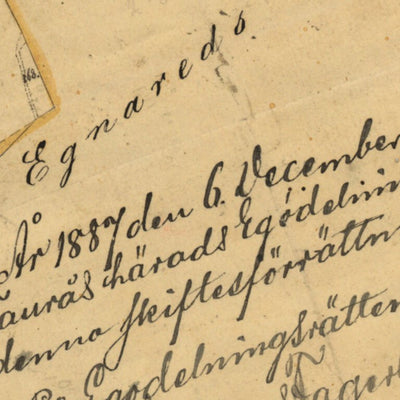 Egnareds
År 1887 den 6. December
härads Egodelnin
denna skiftesförrättn
Egodelningsrätten
Fagerl
268.